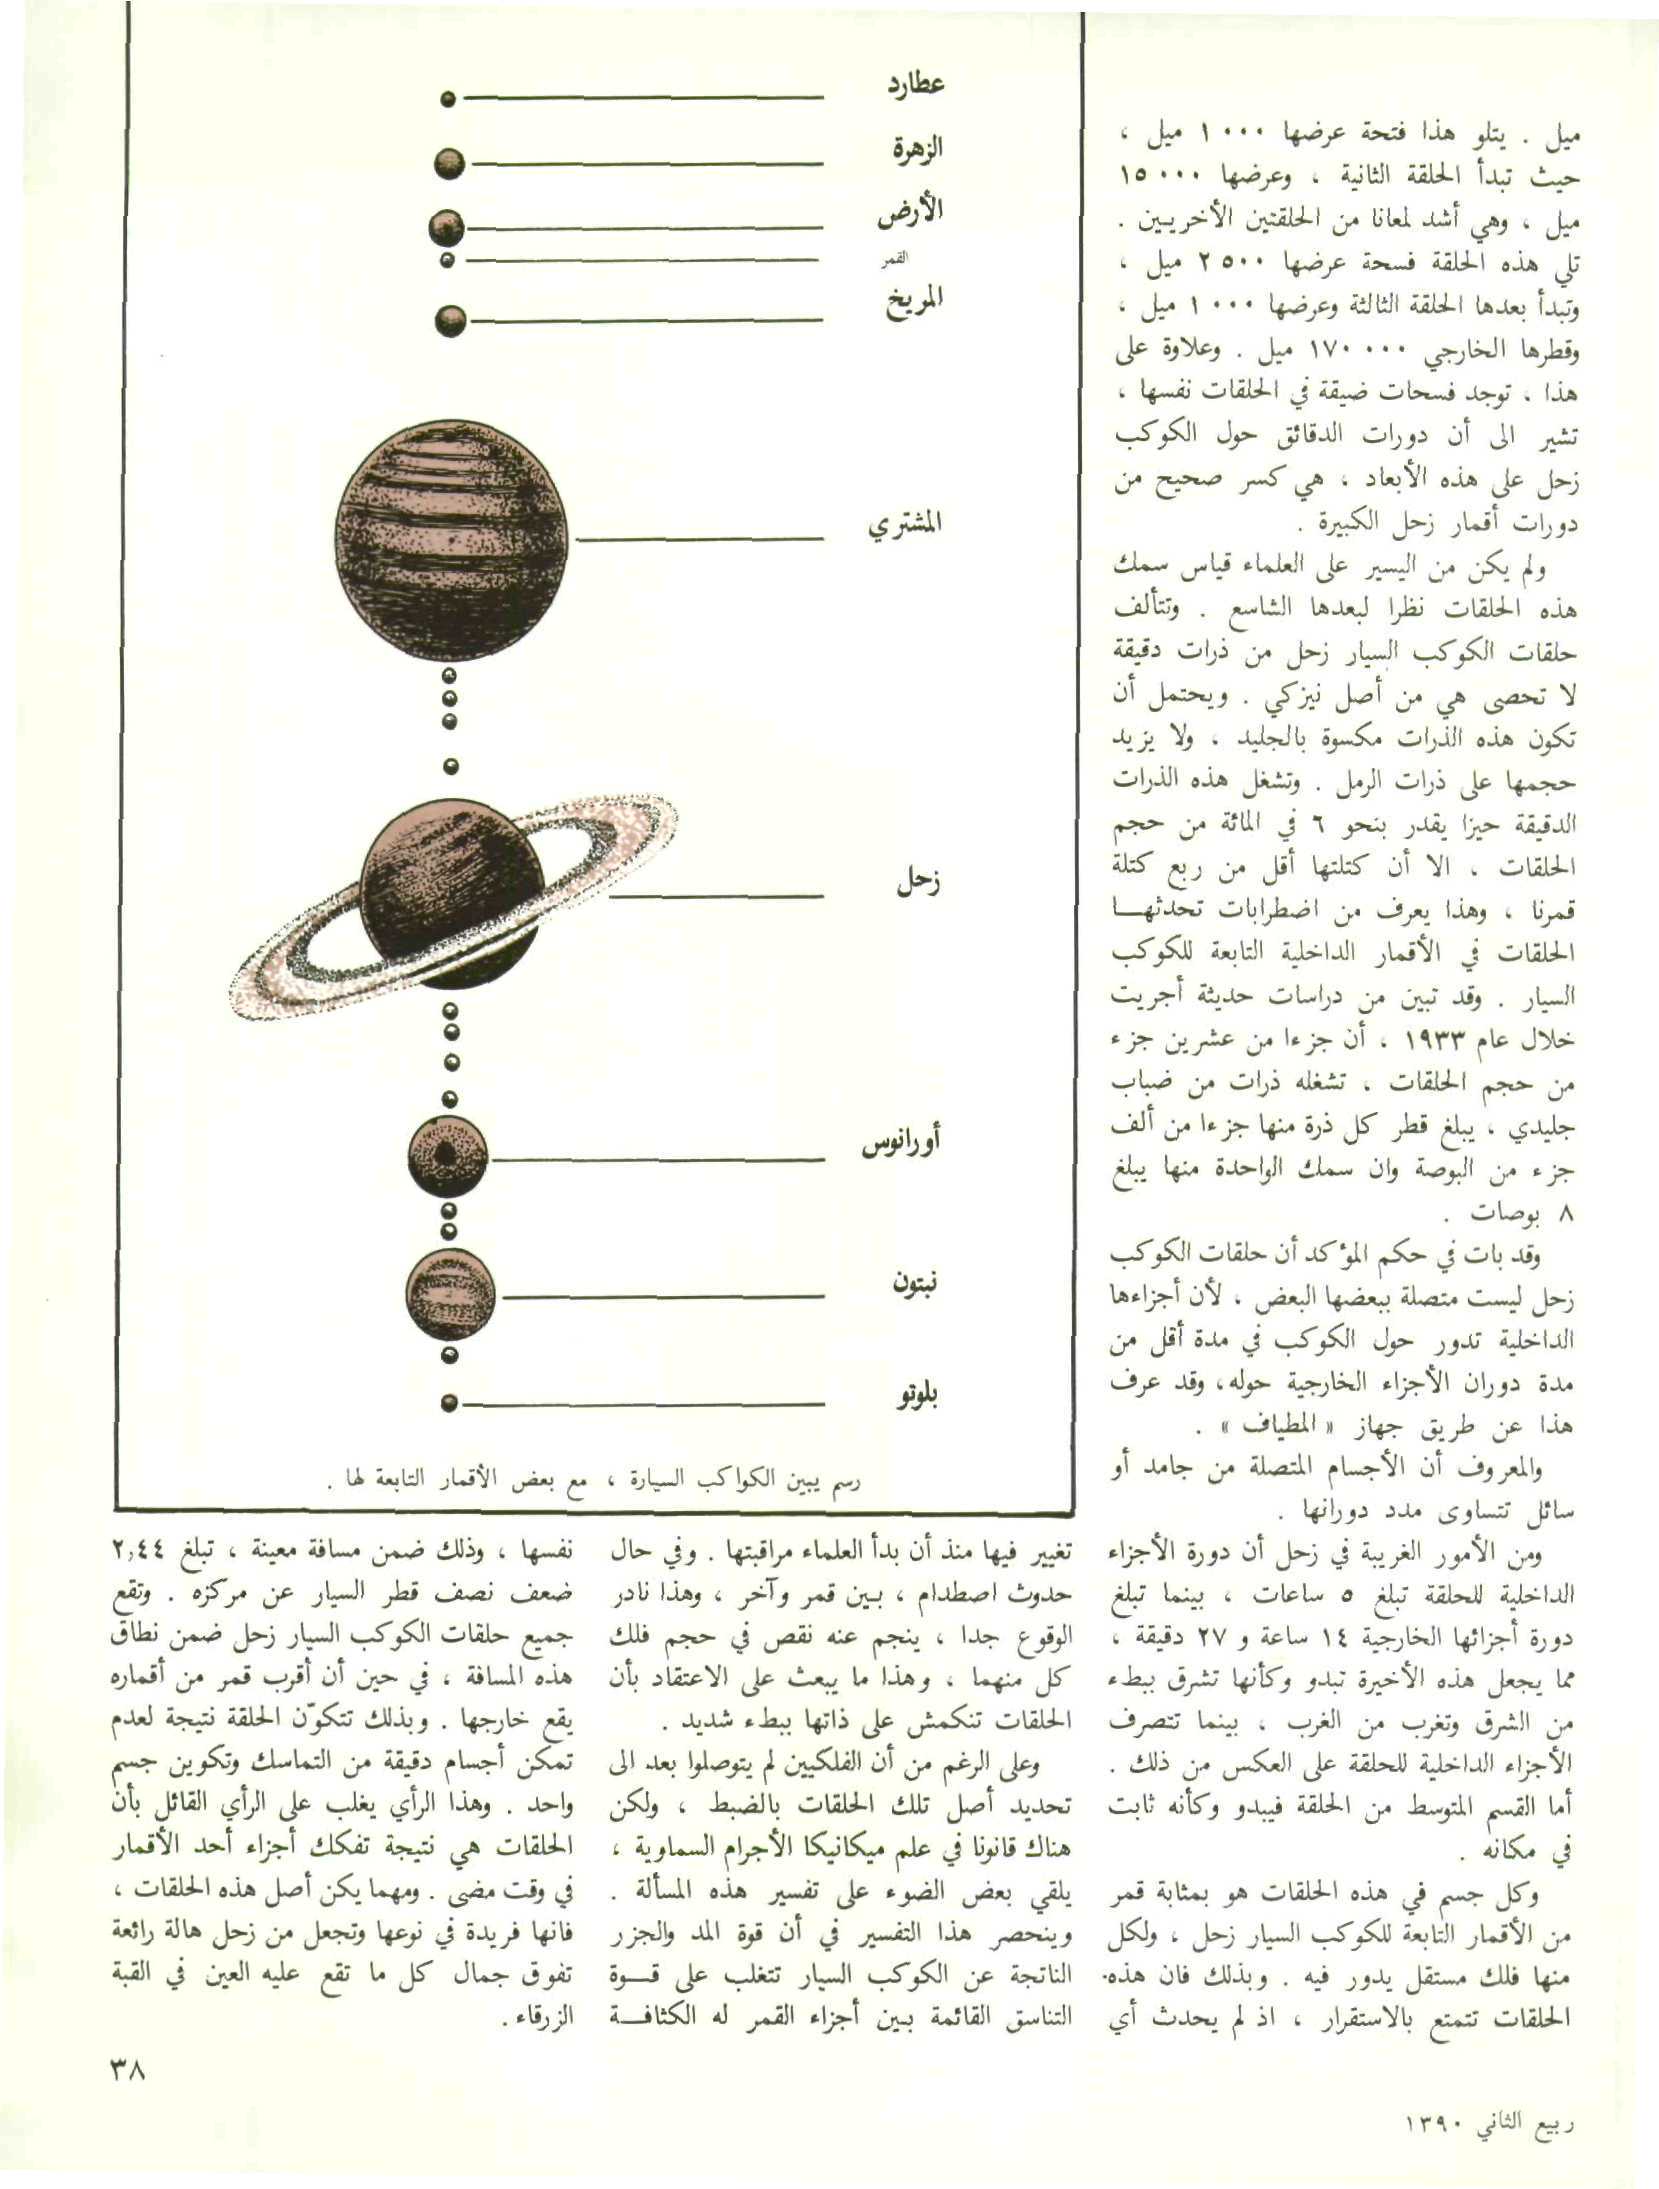 ميل . يتلو هذا فتحة عرضها ١٠٠٠ ميل ،
حيث تبدأ الحلقة الثانية ، وعرضها ١٥٠٠٠
ميل ، وهي أشد لمعانا من الحلقتين الأخريين .
تلي هذه الحلقة فسحة عرضها ٢٥٠٠ ميل ،
وتبدأ بعدها الحلقة الثالثة وعرضها ١٠٠٠ ميل ،
وقطرها الخارجي ١٧٠٠٠٠ ميل . وعلاوة على
هذا ، توجد فسحات ضيقة في الحلقات نفسها ،
تشير الى أن دورات الدقائق حول الكوكب
زحل على هذه الأبعاد ، هي كسر صحيح من
دورات أقمار زحل الكبيرة .
ولم يكن من اليسير على العلماء قياس سمك
هذه الحلقات نظرا لبعدها الشاسع . وتتألف
حلقات الكوكب السيار زحل من ذرات دقيقة
لا تحصى هي من أصل نيزكي . ويحتمل أن
تكون هذه الذرات مكسوة بالجليد ، ولا يزيد
حجمها على ذرات الرمل . وتشغل هذه الذرات
الدقيقة حيزا يقدر بنحو ٦ في المائة من حجم
الحلقات ، الا أن كتلتها أقل من ربع كتلة
قمرنا ، وهذا يعرف من اضطرابات تحدثهـا
الحلقات في الأقمار الداخلية التابعة للكوكب
السيار . وقد تبين من دراسات حديثة أجريت
خلال عام ١٩٣٣ ، أن جزءا من عشرين جزء
من حجم الحلقات ، تشغله ذرات من ضباب
جليدي ، يبلغ قطر كل ذرة منها جزءا من ألف
جزء من البوصة وان سمك الواحدة منها يبلغ
٨ بوصات .
وقد بات في حكم المؤكد أن حلقات الكوكب
زحل ليست متصلة ببعضها البعض ، لأن أجزاءها
الداخلية تدور حول الكوكب في مدة أقل من
مدة دوران الأجزاء الخارجية حوله، وقد عرف
هذا عن طريق جهاز « المطياف » .
والمعروف أن الأجسام المتصلة من جامد أو
سائل تتساوى مدد دورانها .
ومن الأمور الغريبة في زحل أن دورة الأجزاء
الداخلية للحلقة تبلغ ٥ ساعات ، بينما تبلغ
دورة أجزائها الخارجية ١٤ ساعة و ٢٧ دقيقة ،
مما يجعل هذه الأخيرة تبدو وكأنها تشرق ببطء
من الشرق وتغرب من الغرب ، بينما تتصرف
الأجزاء الداخلية للحلقة على العكس من ذلك .
أما القسم المتوسط من الحلقة فيبدو وكأنه ثابت
في مكانه .
وكل جسم في هذه الحلقات هو بمثابة قمر
من الأقمار التابعة للكوكب السيار زحل ، ولكل
منها فلك مستقل يدور فيه . وبذلك فان هذه
الحلقات تتمتع بالاستقرار ، اذ لم يحدث أي
عطارد
الزهرة
الأرض
القمر
المريخ
المشتري
زحل
أورانوس
نبتون
بلوتو
رسم يبين الكواكب السيارة ، مع بعض الأقمار التابعة لها .
تغيير فيها منذ أن بدأ العلماء مراقبتها . وفي حال
حدوث اصطدام ، بين قمر وآخر ، وهذا نادر
الوقوع جدا ، ينجم عنه نقص في حجم فلك
كل منهما ، وهذا ما يبعث على الاعتقاد بأن
الحلقات تنكمش على ذاتها ببطء شديد .
وعلى الرغم من أن الفلكيين لم يتوصلوا بعد الى
تحديد أصل تلك الحلقات بالضبط ، ولكن
هناك قانونا في علم ميكانيكا الأجرام السماوية ،
يلقي بعض الضوء على تفسير هذه المسألة .
وينحصر هذا التفسير في أن قوة المد والجزر
الناتجة عن الكوكب السيار تتغلب على قـوة
التناسق القائمة بين أجزاء القمر له الكثافـة
نفسها ، وذلك ضمن مسافة معينة ، تبلغ ٢,٤٤
ضعف نصف قطر السيار عن مركزه . وتقع
جميع حلقات الكوكب السيار زحل ضمن نطاق
هذه المسافة ، في حين أن أقرب قمر من أقماره
يقع خارجها . وبذلك تتكوّن الحلقة نتيجة لعدم
تمكن أجسام دقيقة من التماسك وتكوين جسم
واحد . وهذا الرأي يغلب على الرأي القائل بأن
الحلقات هي نتيجة تفكك أجزاء أحد الأقمار
في وقت مضى . ومهما يكن أصل هذه الحلقات ،
فانها فريدة في نوعها وتجعل من زحل هالة رائعة
تفوق جمال كل ما تقع عليه العين في القبة
الزرقاء .
٣٨
ربيع الثاني ١٣٩٠